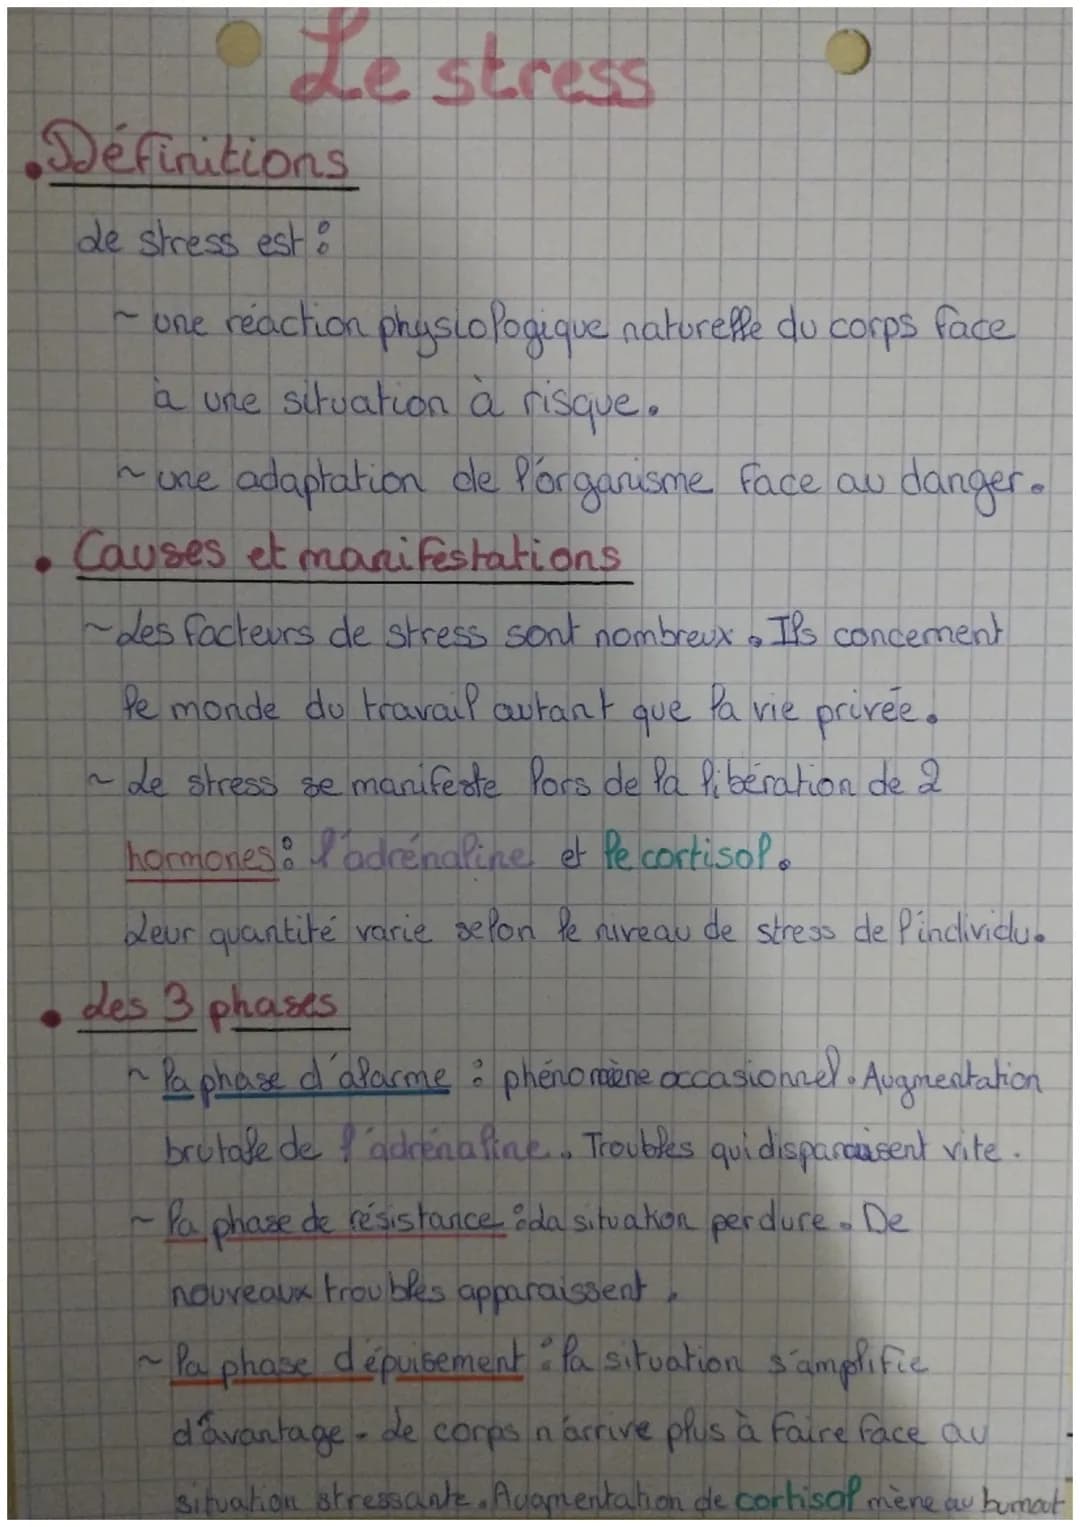 Le stress
• Définitions
Le stress est :
~ une réaction physiologique naturelle du corps face
à une situation à risque.
~ une adaptation de l'organisme face au danger.
• Causes et manifestations
~ Les facteurs de stress sont nombreux. Ils concernent
le monde du travail autant que la vie privée.
~ Le stress se manifeste lors de la libération de 2
hormones : l'adrénaline et le cortisol.
Leur quantité varie selon le niveau de stress de l'individu.
• Les 3 phases
~ la phase d'alarme : phénomène occasionnel. Augmentation
brutale de l'adrénaline. Troubles qui disparaissent vite.
~ la phase de résistance : La situation perdure. De
nouveaux troubles apparaissent.
~ la phase d'épuisement : la situation s'amplifie
d'avantage. Le corps n'arrive plus à faire face au
situation stressante. Augmentation de cortisol mène au burnout